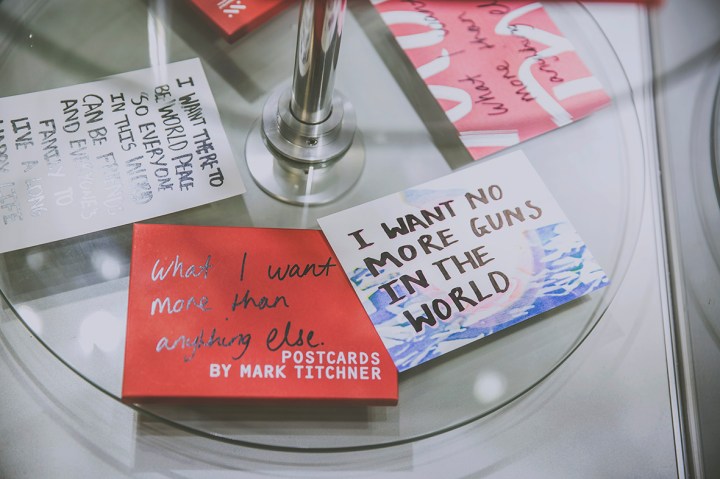 I WANT THERE TO
BE WORLD PEACE
SO EVERYONE
IN THIS WORLD
CAN BE
AND
FAMILY TO
LIVE A LONG
HAPPY LIFE
What I want
more than
anything else.
POSTCARDS
BY MARK TITCHNER
I WANT NO
MORE GUNS
IN THE
WORLD
What I want
more than
anything